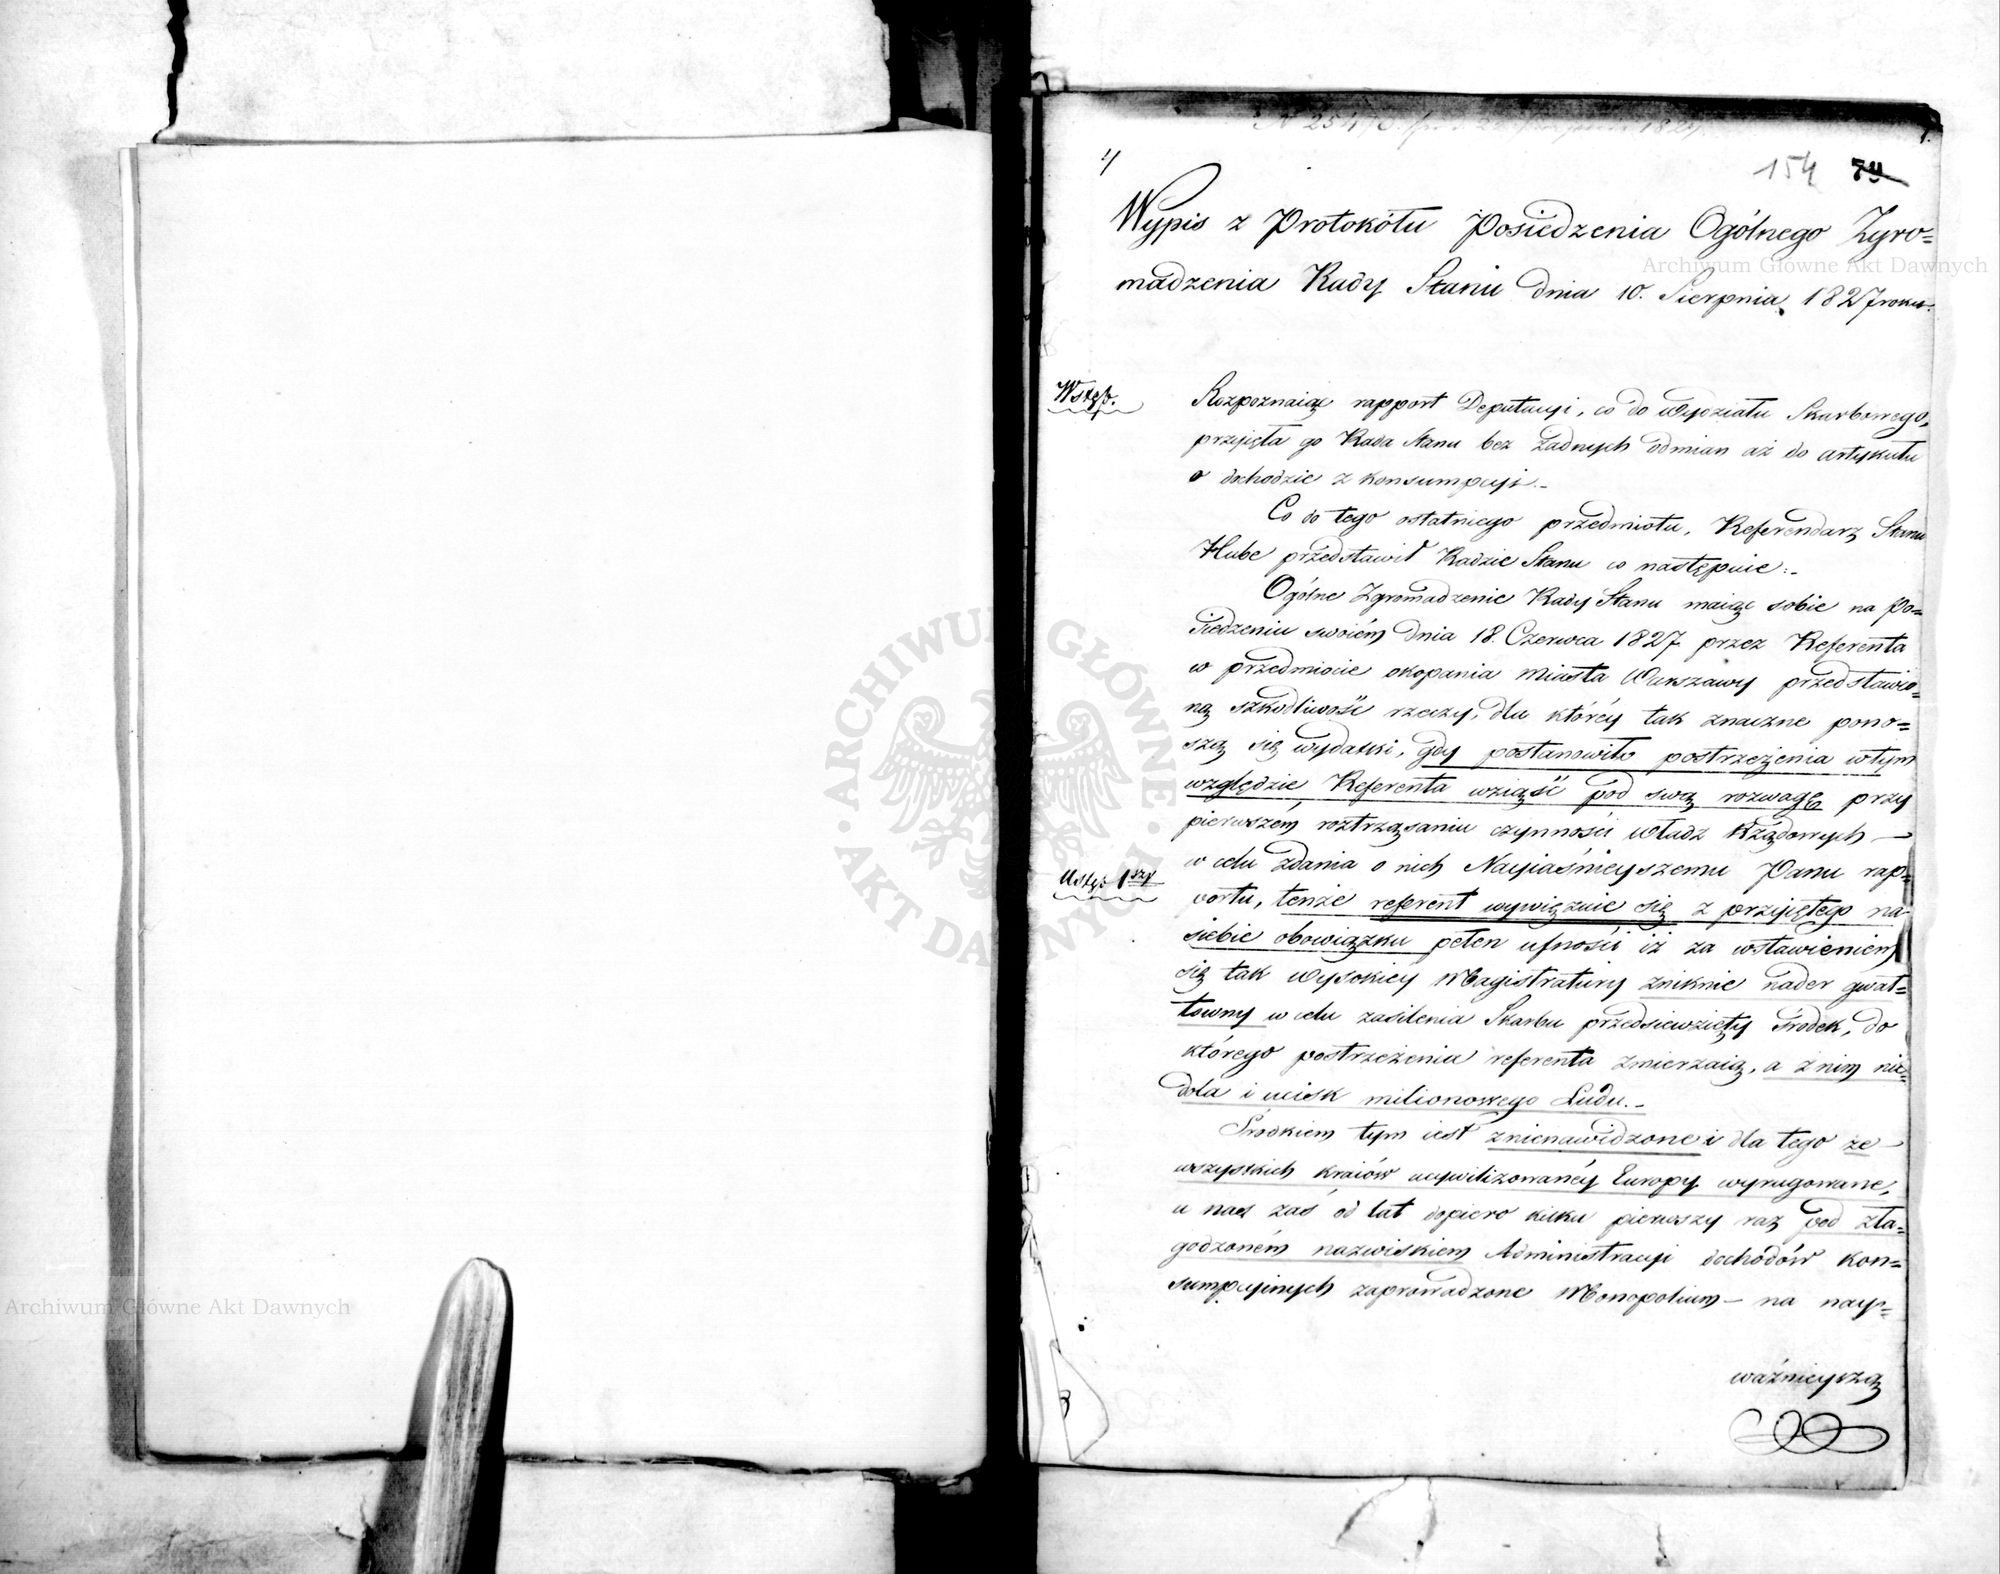 1/
154 74
Wypis z Protokółu Posiedzenia Ogólnego Zgro=
madzenia Rady Stanu dnia 10. Sierpnia 1827 roku.
Wstęp.
Rozpoznaiąc rapport Deputacyi, co do Wydziału Skarbowego,
przyięła go Rada Stanu bez żadnych odmian aż do artykułu
o dochodzie z konsumpcyi.-
Co do tego ostatniego przedmiotu, Referendarz Stanu
Hube przedstawił Radzie Stanu co następuie:-
Ogólne Zgromadzenie Rady Stanu maiąc sobie na Po=
siedzeniu swoiém dnia 18. Czerwca 1827 przez Referenta
w przedmiocie okopania Miasta Warszawy przedstawio=
ną szkodliwość rzeczy, dla któréy tak znaczne pono=
szą się wydatki, gdy postanowiło postrzeżenia w tym
względzie Referenta wziąść pod swą rozwagę przy
pierwszém roztrząsaniu czynności Władz Rządowych —
w celu zdania o nich Nayiaśnieyszemu Panu rap=
Ustęp 1szy
portu, tenże referent wywięzuie się z przyiętego na
siebie obowiązku pełen ufności iż za wstawieniem
się tak wysokiéy Magistratury zniknie nader gwał=
towny w celu zasilenia Skarbu przedsiewzięty środek, do
którego postrzeżenia referenta zmierzaią, a z nim nie=
dola i ucisk milionowego Ludu.-
Środkiem tym iest znienawidzone i dla tego ze
wszystkich kraiów ucywilizowanéy Europy wyrugowane,
u nas zaś od lat dopiero kilku pierwszy raz pod zła=
godzoném nazwiskiem Administracyi dochodów kon=
sumpcyinych zaprowadzone Monopolium — na nay=
ważnieyszą
ARCHIWUM GŁÓWNE AKT DAWNYCH
Archiwum Główne Akt Dawnych
Archiwum Główne Akt Dawnych